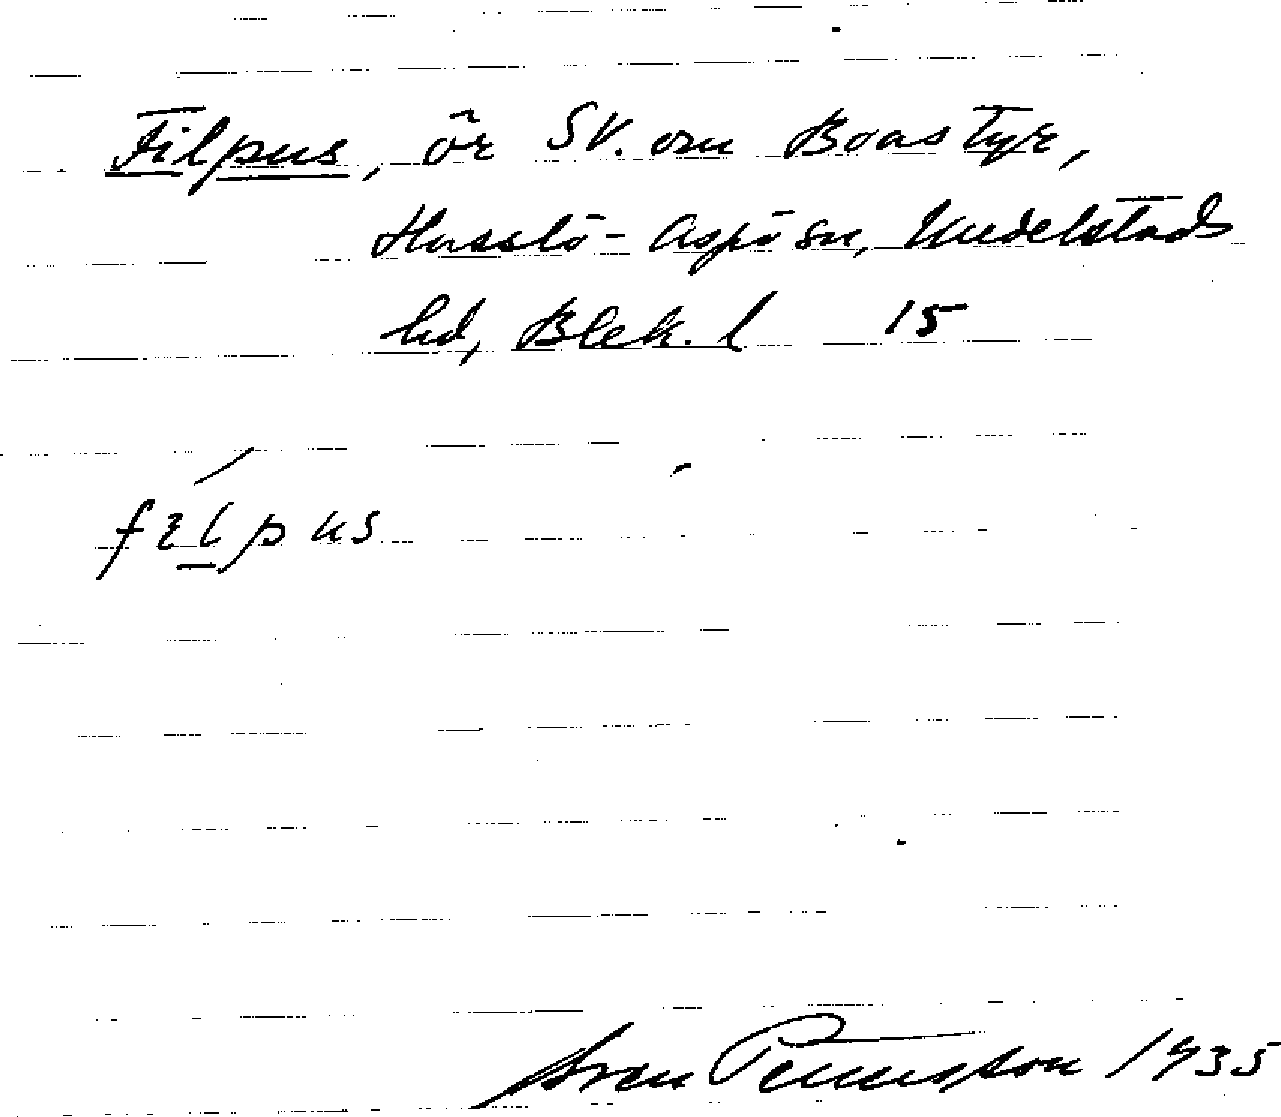 Filpus, ör SV. om Boastyr,
Hasslö-Aspö sn, Medelstads
hd, Blek. l 15
filpus
Sven Pennsson 1935